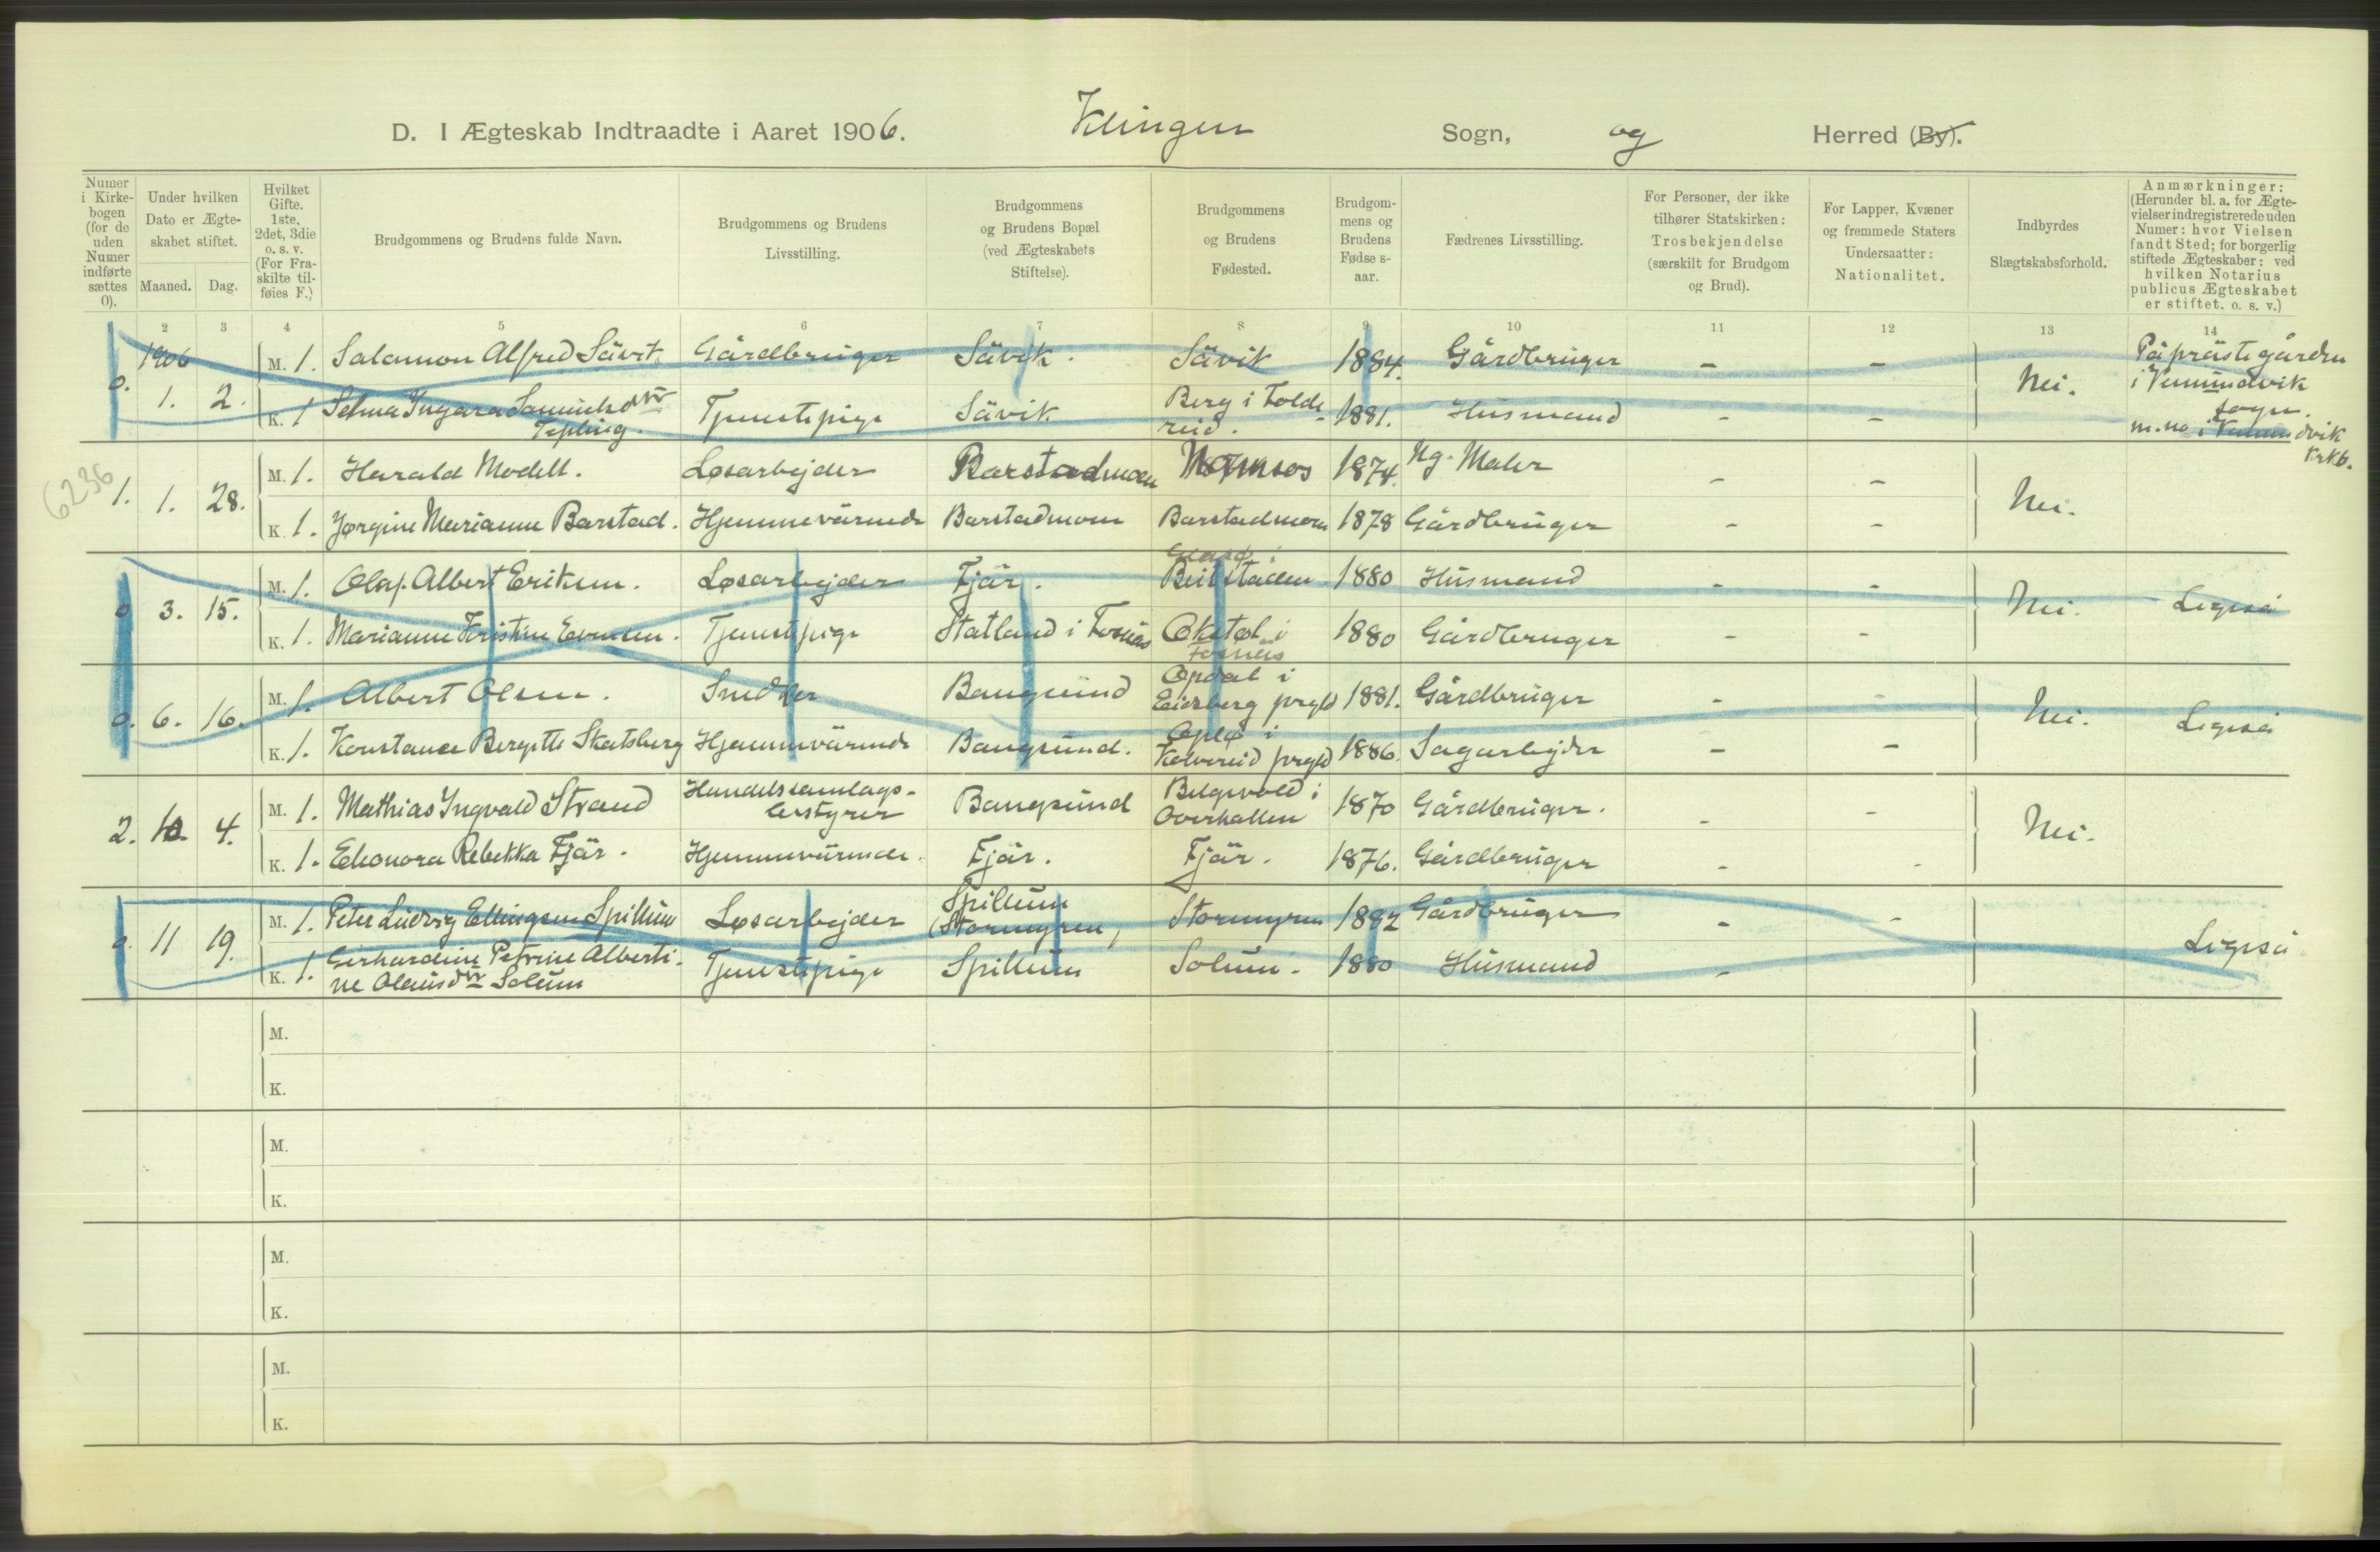 D. I Ægteskab Indtraadte i Aaret 1906. Klingen Sogn, og Herred (By).
Numer i Kirkebogen (for de uden Numer indførte sættes 0).
Under hvilken Dato er Ægteskabet stiftet.
Maaned. Dag.
Hvilket Gifte. 1ste, 2det, 3die o. s. v. (For Fraskilte tilføies F.)
Brudgommens og Brudens fulde Navn.
Brudgommens og Brudens Livsstilling.
Brudgommens og Brudens Bopæl (ved Ægteskabets Stiftelse).
Brudgommens og Brudens Fødested.
Brudgommens og Brudens Fødselsaar.
Fædrenes Livsstilling.
For Personer, der ikke tilhører Statskirken: Trosbekjendelse (særskilt for Brudgom og Brud).
For Lapper, Kvæner og fremmede Staters Undersaatter: Nationalitet.
Indbyrdes Slægtskabsforhold.
Anmærkninger: (Herunder bl. a. for Ægtevielser indregistrerede uden Numer: hvor Vielsen fandt Sted; for borgerlig stiftede Ægteskaber: ved hvilken Notarius publicus Ægteskabet er stiftet, o. s. v.)
2 3 4 5 6 7 8 9 10 11 12 13 14
1906
0. 1. 2. M. 1. Salamon Alfred Sävik Gårdbruger Sävik. Sävik 1884. Gårdbruger - - Nei. På prästegården i Vemundvik sogn.
K. 1 Selma Ingara Tjenestepige Sävik Berg i Foldereid. 1881. Husmand - -
6236
1. 1. 28. M. 1. Harald Modell. Løsarbejder Barstadmoen Namsos 1874. Maler - - Nei.
K. 1. Jørgine Marianne Barstad. Hjemmeværende Barstadmoen Barstadmoen 1878 Gårdbruger - -
0 3. 15. M. 1. Olaf Albert Eriksen. Løsarbejder Fjär. Beitstaden 1880 Husmand - - Nei. Ligeså
K. 1. Marianne Kristine Tjenestepige Statland i Fosnäs i Fosnäs 1880 Gårdbruger - -
0. 6. 16. M. 1. Albert Olsen. Snedker Bangsund Opdal i prgld 1881. Gårdbruger - - Nei. Ligeså
K. 1. Konstance Bergitte Skatsberg Hjemmeværende Bangsund. Oplø i Kolvereid prgld 1886. Sagarbejder - -
2. 10. 4. M. 1. Mathias Ingvald Strand Handelssamlags-bestyrer Bangsund i Overhallen 1870 Gårdbruger. - - Nei.
K. 1. Eleonora Rebekka Fjär. Hjemmeværende. Fjär. Fjär. 1876. Gårdbruger - -
0. 11 19. M. 1. Peter Ludvig Ellingsen Spillum Løsarbejder Spillum (Stormyren) Stormyren 1882 Gårdbruger - - Ligeså
K. 1. Gerhardine Petrine Albertine Solum Tjenestepige Spillum Solum. 1880 Husmand -
M.
K.
M.
K.
M.
K.
M.
K.